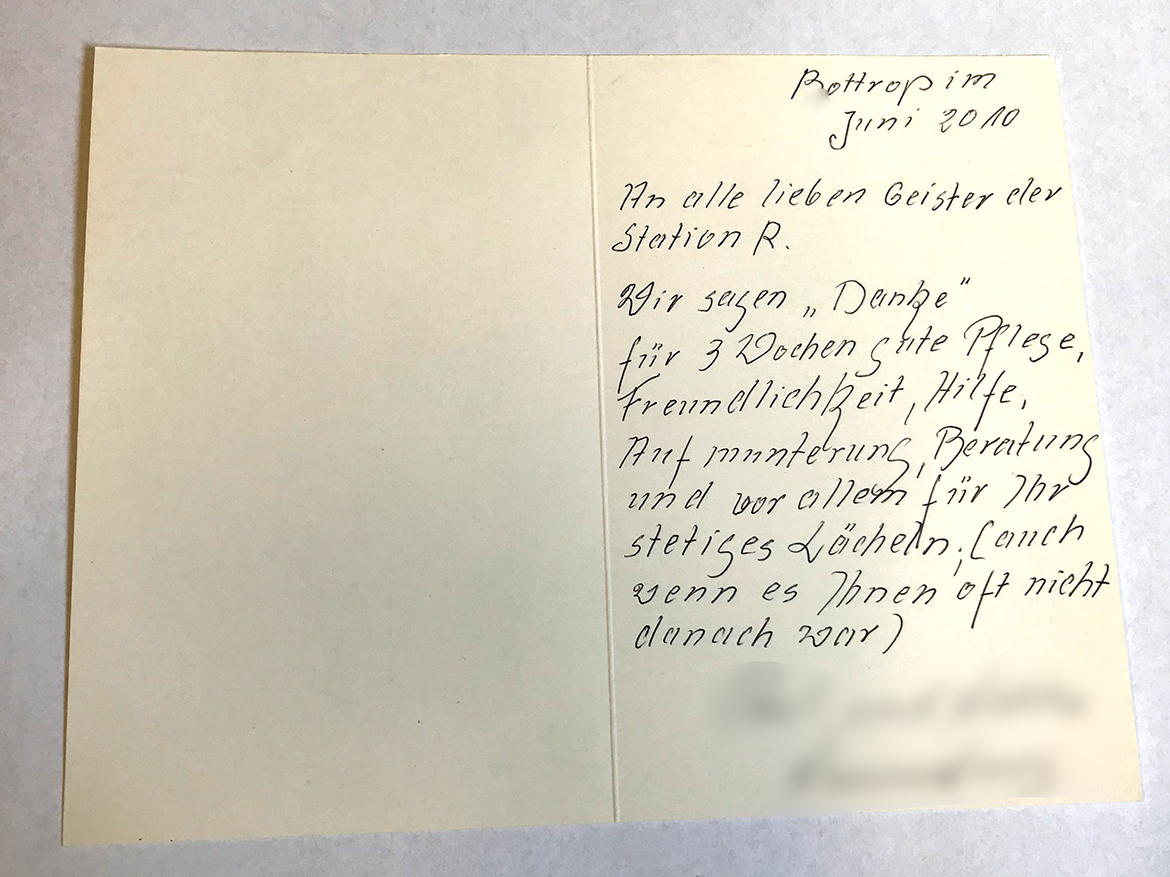 Bottrop im
Juni 2010
An alle lieben Geister der
Station R.
Wir sagen „Danke“
für 3 Wochen gute Pflege,
Freundlichkeit, Hilfe,
Aufmunterung, Beratung
und vor allem für Ihr
stetiges Lächeln, (auch
wenn es Ihnen oft nicht
danach war)